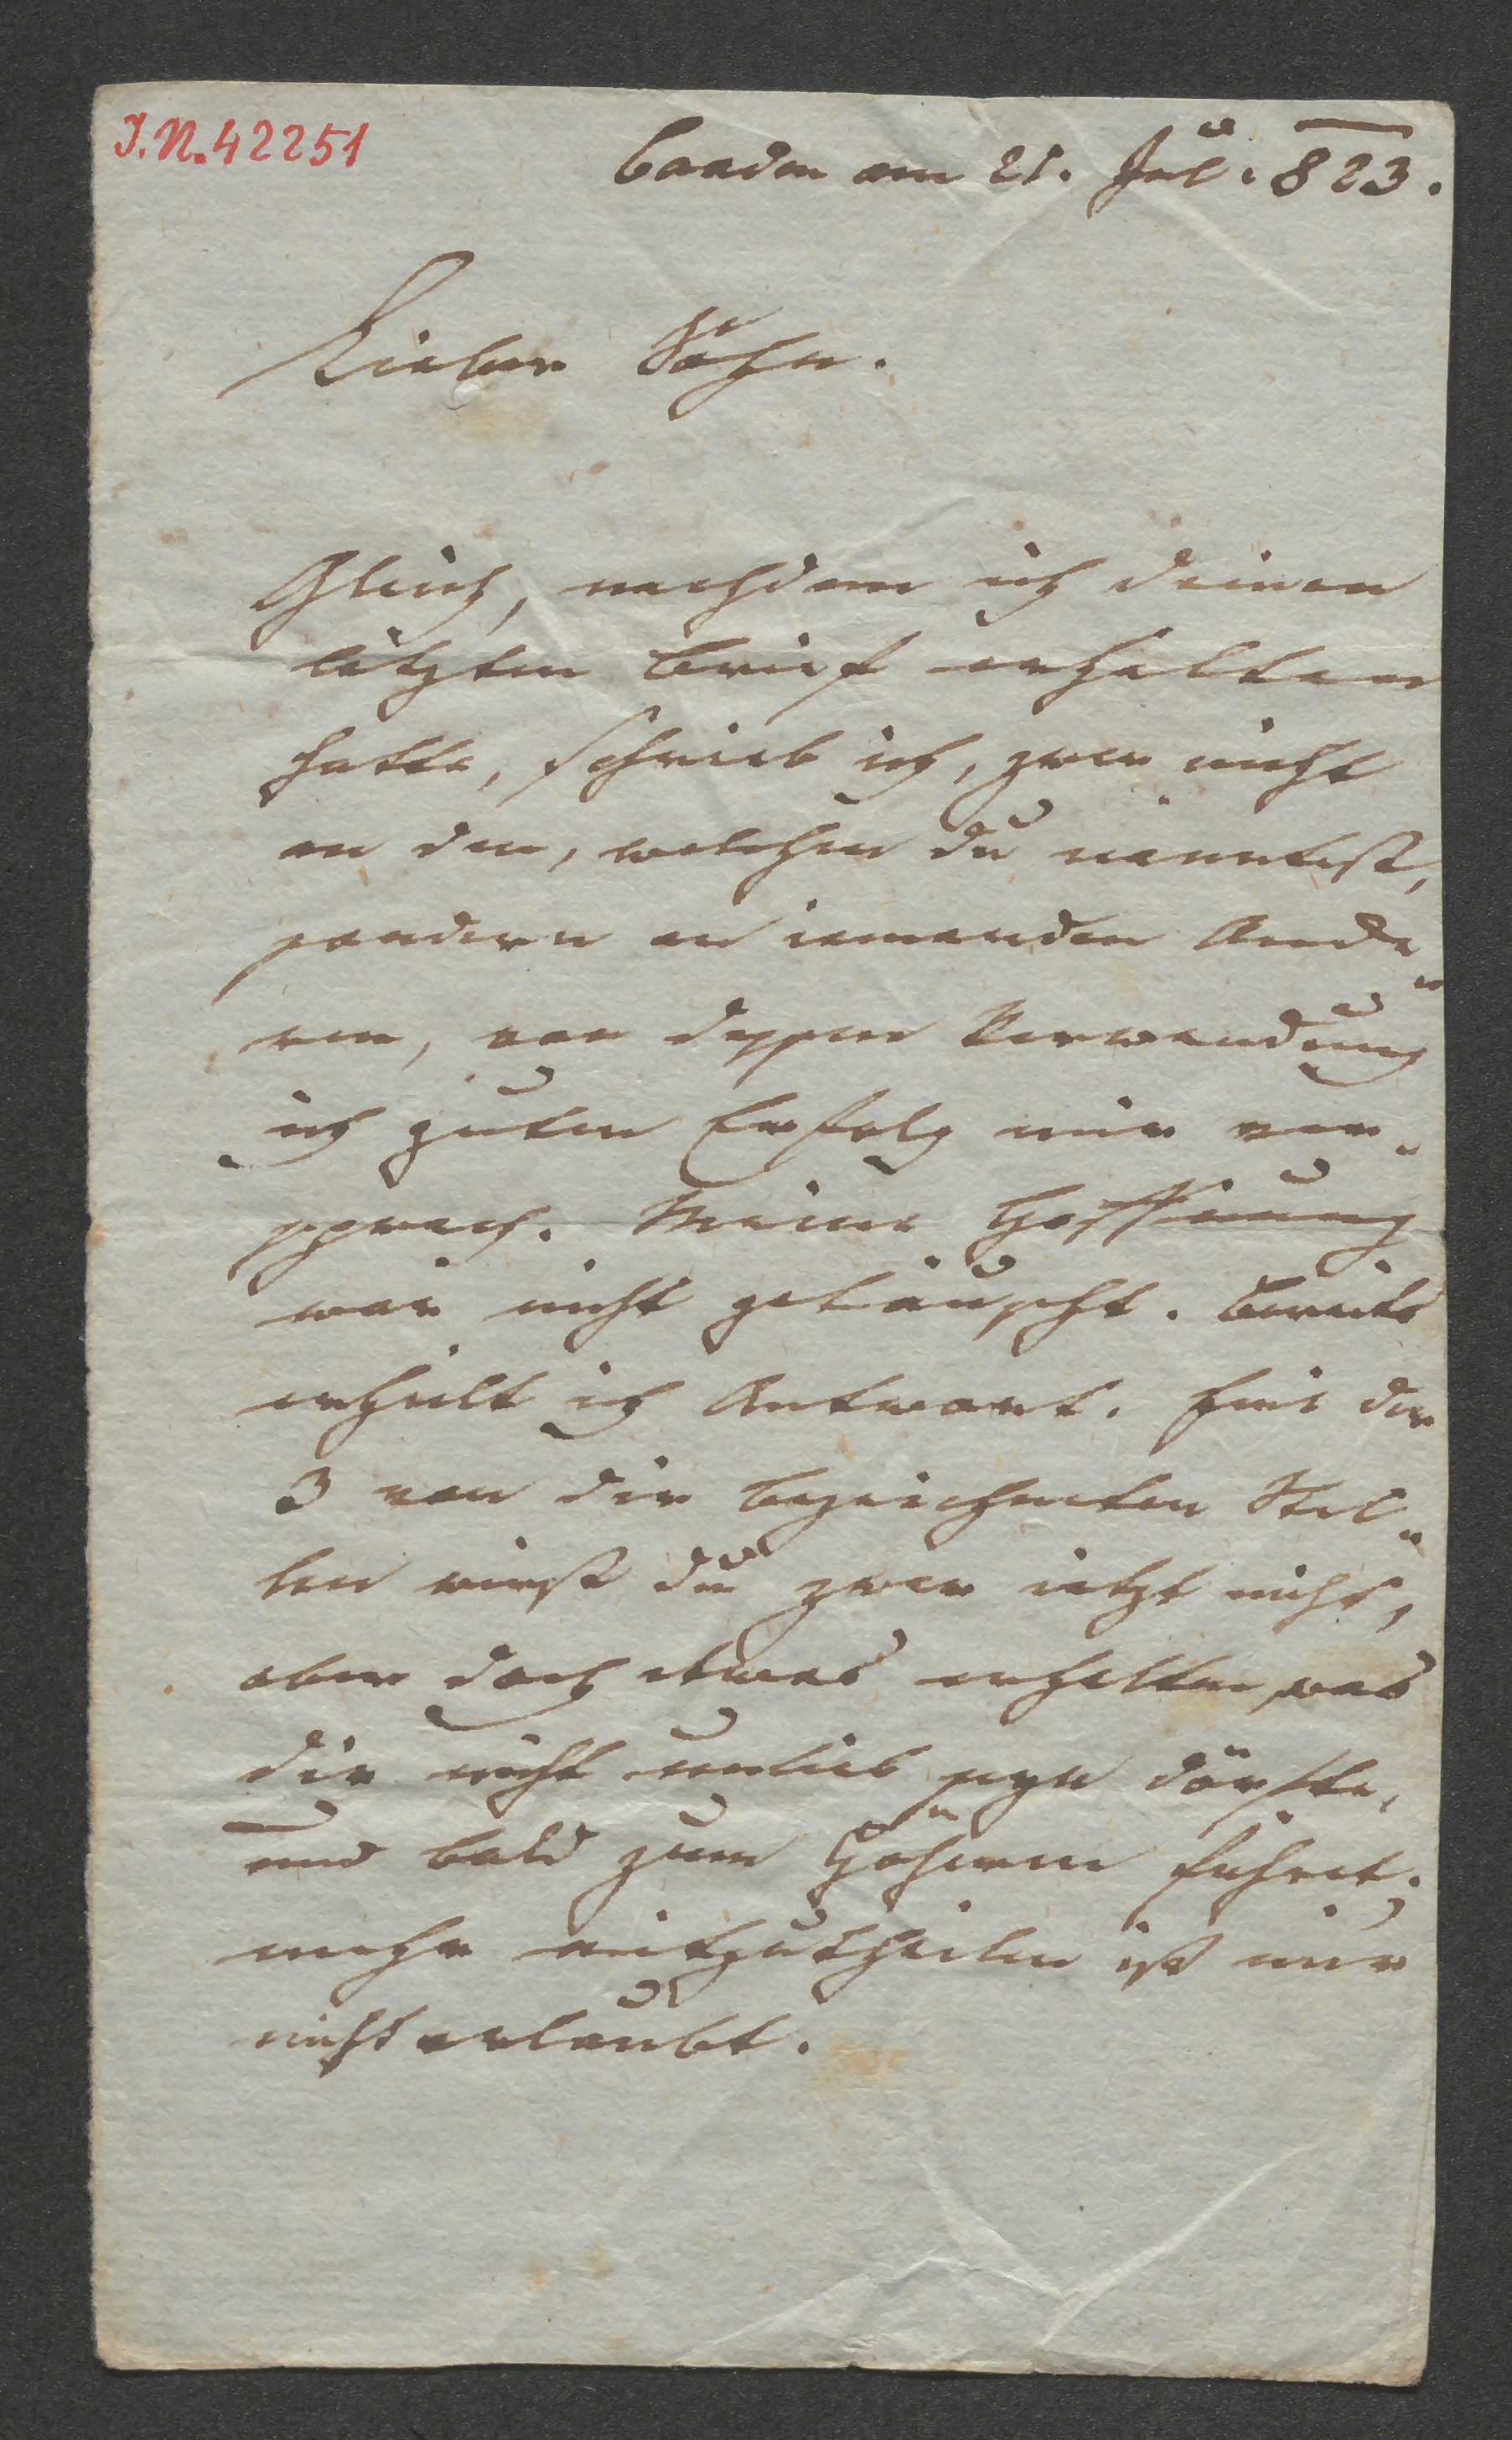 I.N. 42251
Baaden am 21. Jul. 823.
Lieber Sohn.
Gleich, nachdem ich deinen
letzten Brief erhalten
hatte, schrieb ich, zwar nicht
an den, welchen du nanntest,
sondern an iemanden Ande"
ren, von dessen Verwendung
ich guten Erfolg mir ver"
sprach. Meine Hoffnung
war nicht getäuscht. Bereits
erhielt ich Antwort. Eine der
3 von dir bezeichneten Stel"
len wirst du zwar ietzt nicht,
aber doch etwas erhalten, was
dir nicht unlieb seyn dörfte,
und bald zum Höheren führet;
mehr mitzutheilen ist mir
nicht erlaubt.